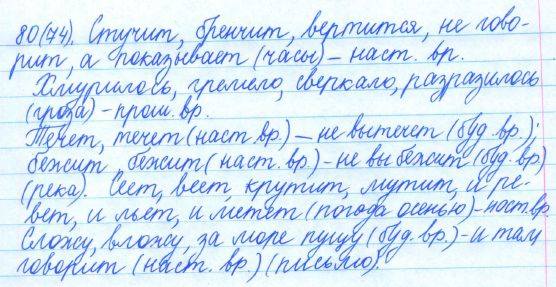 80(74). Стучит, бренчит, вертится, не гово-
рит, а показывает (часы) – наст. вр.
Хмурилось, гремело, сверкало, разразилось
(гроза) – прош. вр.
Течет, течет (наст. вр.) – не вытечет (буд. вр.);
бежит бежит (наст. вр.) – не выбежит (буд. вр.)
(река). Сеет, веет, крутит, мутит, и ре-
вет, и льет, и метет (погода осенью) – наст. вр
Сложу, вложу, за море пущу (буд. вр.) – и там
говорит (наст. вр.) (письмо).